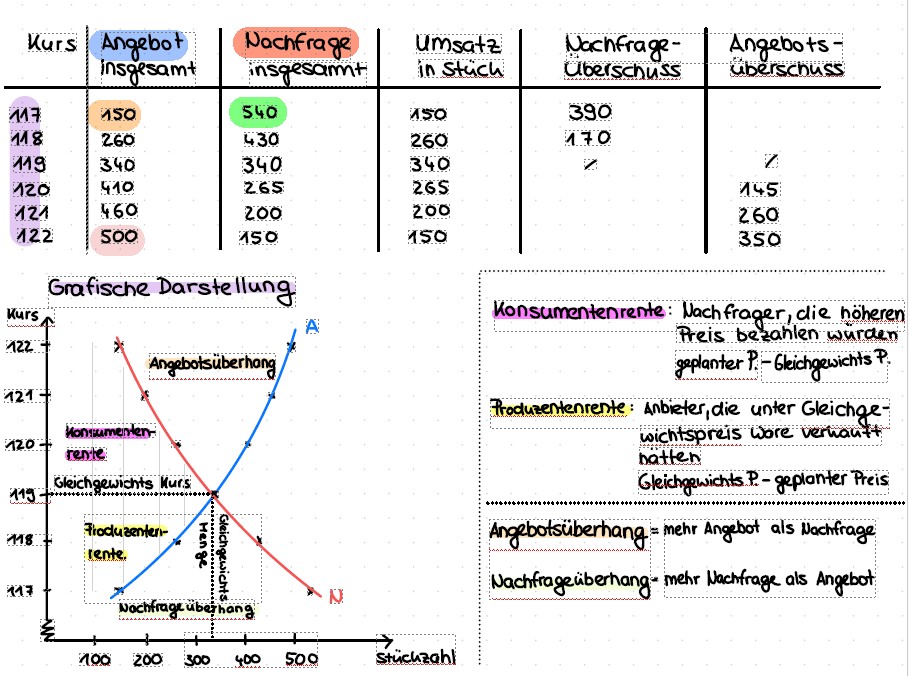 Kurs Angebot insgesamt Nachfrage insgesamt Umsatz in Stück Nachfrage-Überschuss Angebots-überschuss
117 150 540 150 390
118 260 430 260 170
119 340 340 340 / /
120 410 265 265 145
121 460 200 200 260
122 500 150 150 350
Grafische Darstellung
Kurs
A
122
Angebotsüberhang
121
120
Konsumenten-
rente
Gleichgewichts Kurs
119
Produzenten-
rente.
Gleichgewichts
Menge
118
117
N
Nachfrageüberhang
100 200 300 400 500 Stückzahl
Konsumentenrente: Nachfrager, die höheren
Preis bezahlen würden
geplanter P. - Gleichgewichts P.
Produzentenrente: Anbieter, die unter Gleichge-
wichtspreis Ware verkauft
hätten
Gleichgewichts P. - geplanter Preis
Angebotsüberhang = mehr Angebot als Nachfrage
Nachfrageüberhang = mehr Nachfrage als Angebot